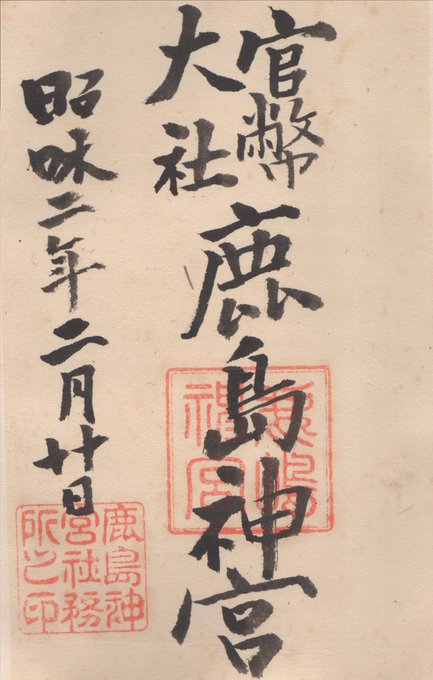 官幣
大社
鹿島神宮
昭和二年二月廿日
鹿嶋
神宮
鹿島神
宮社務
所之印